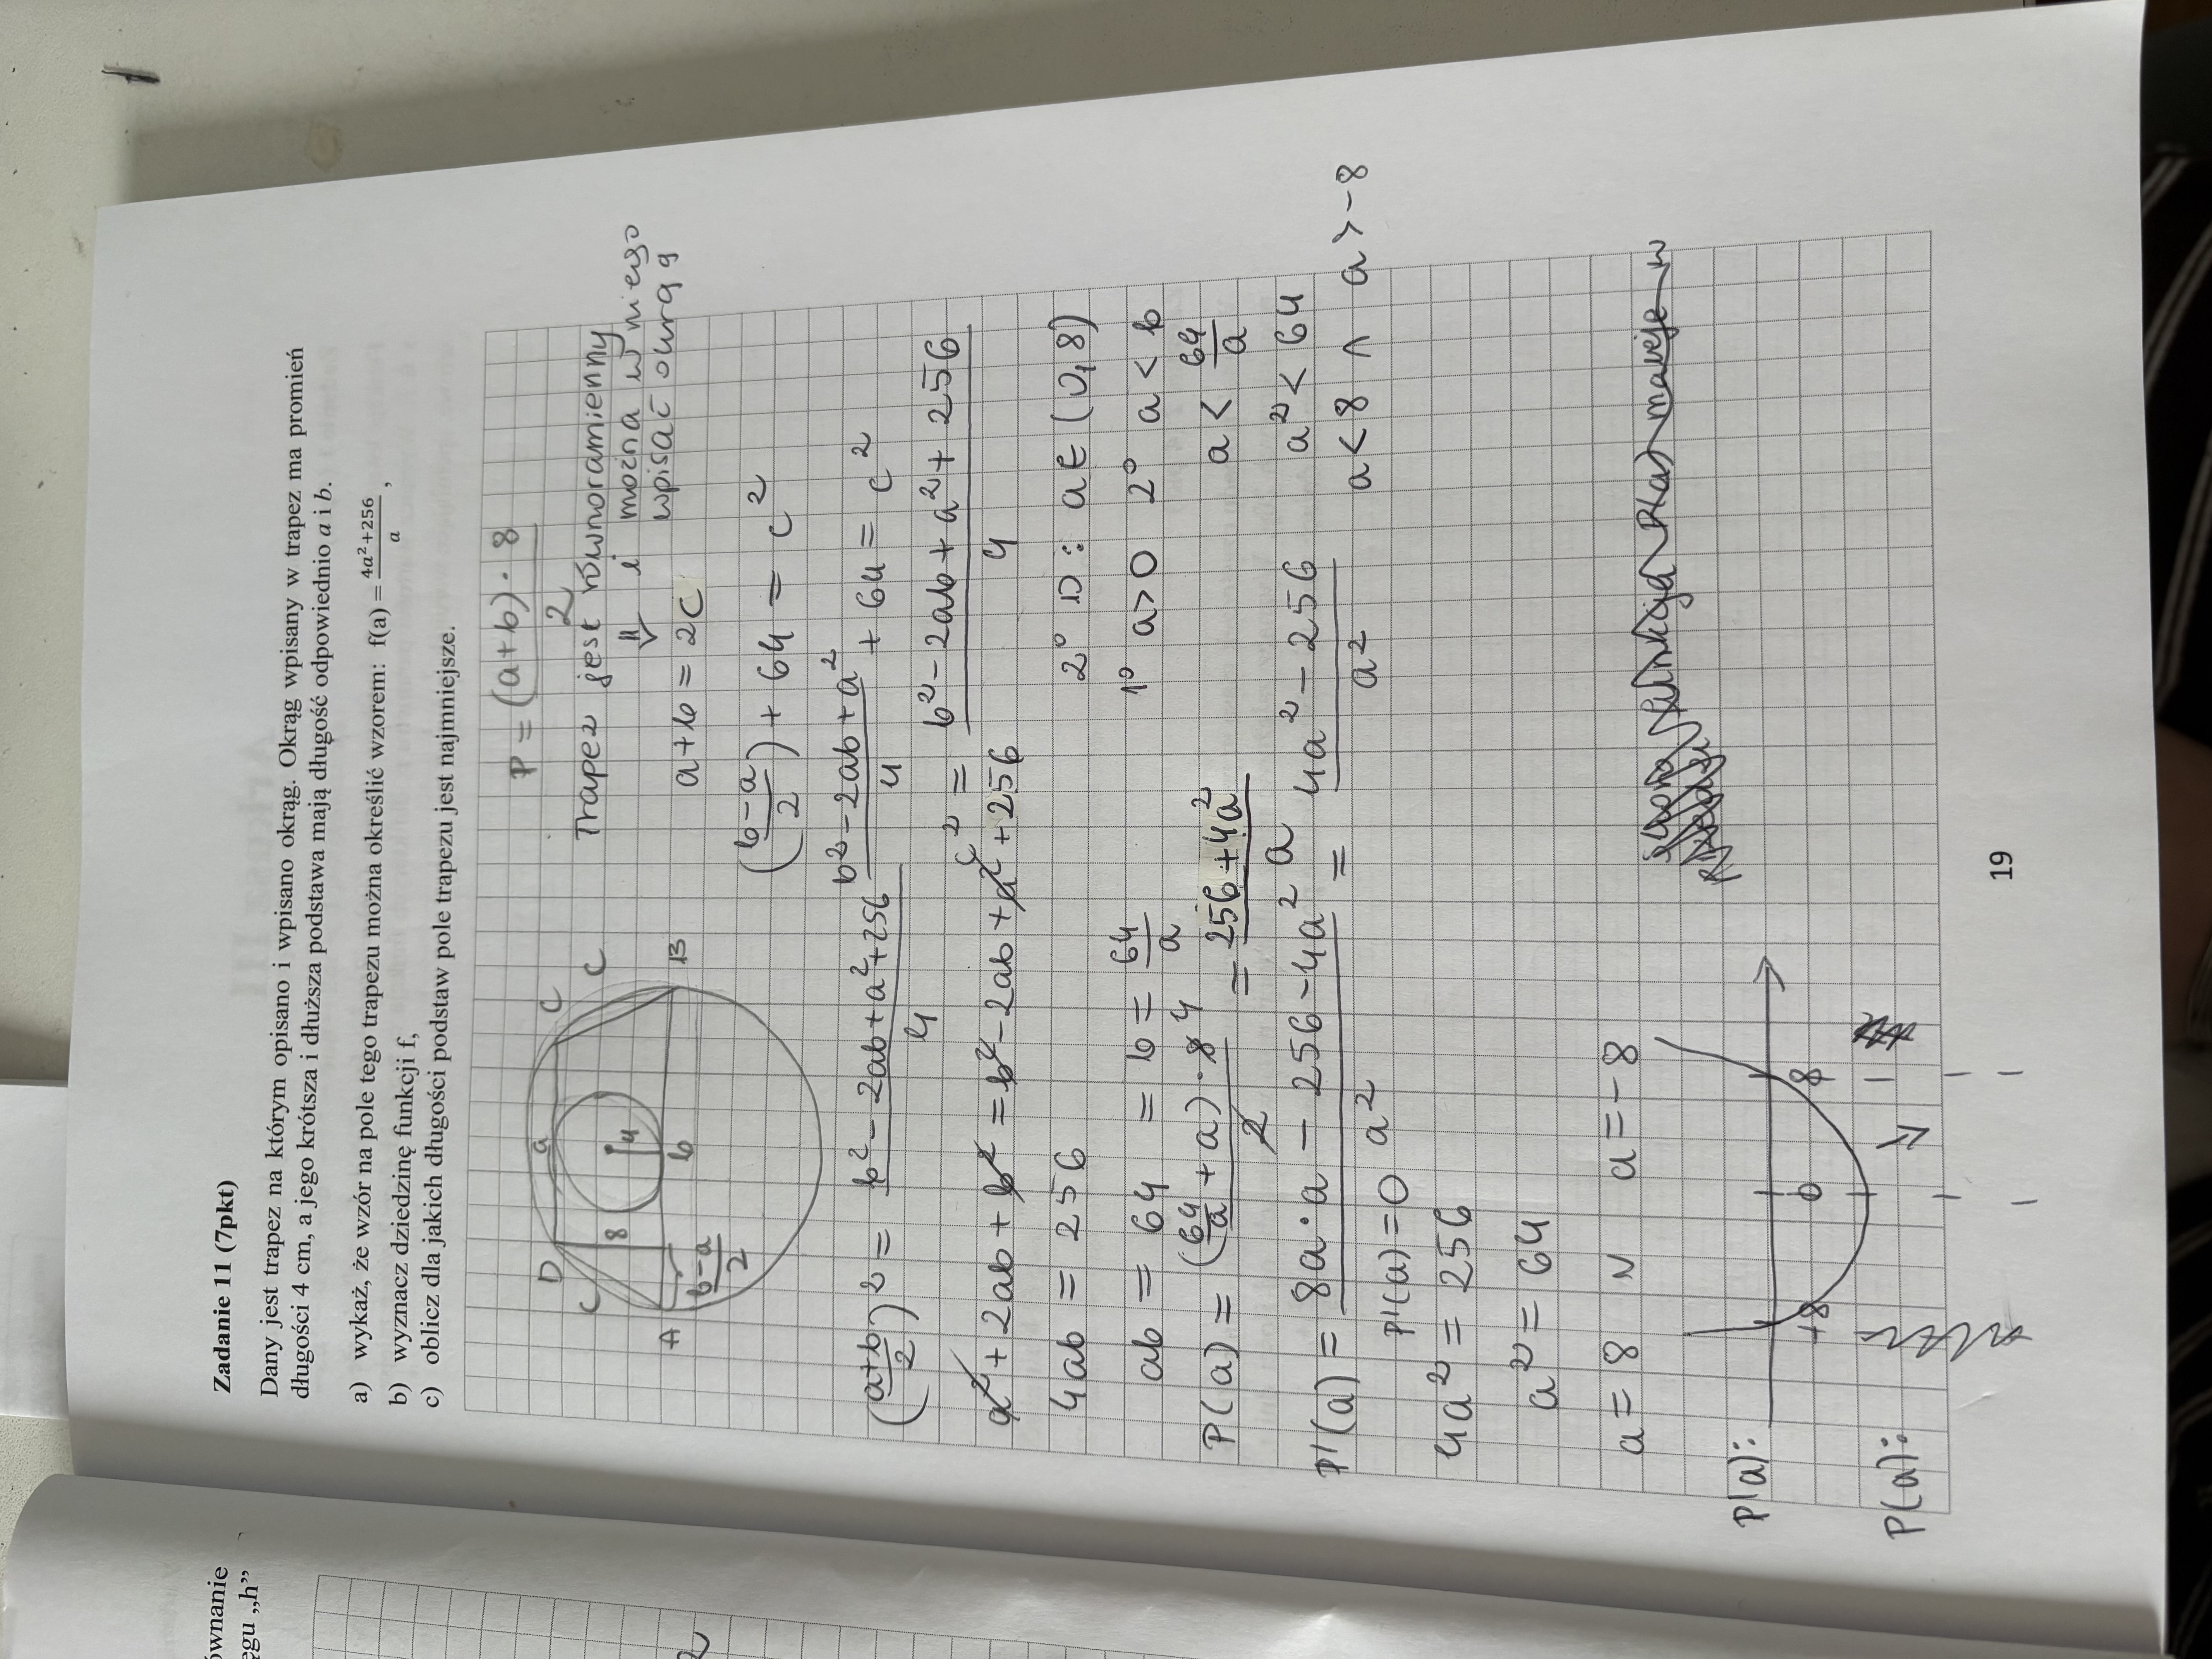 Zadanie 11 (7pkt)
Dany jest trapez na którym opisano i wpisano okrąg. Okrąg wpisany w trapez ma promień
długości 4 cm, a jego krótsza i dłuższa podstawa mają długość odpowiednio a i b.
a) wykaż, że wzór na pole tego trapezu można określić wzorem: f(a) = \frac{4a²+256}{a},
b) wyznacz dziedzinę funkcji f,
c) oblicz dla jakich długości podstaw pole trapezu jest najmniejsze.
P = \frac{(a+b)·8}{2}
Trapez jest równoramienny
i można w niego
wpisać okrąg
⇓
a+b = 2c
D a C
c 8 4 c
A b B
\frac{b-a}{2}
(\frac{b-a}{2})² + 64 = c²
\frac{b²-2ab+a²}{4} + 64 = c²
(\frac{a+b}{2})² = \frac{b²-2ab+a²+256}{4}
c² = \frac{b²-2ab+a²+256}{4}
a²+2ab+b² = b²-2ab+a²+256
4ab = 256
2° D: a∈(0,8)
ab = 64 = b = \frac{64}{a}
1° a>0 2° a<b
P(a) = \frac{(\frac{64}{a}+a)·8 4}{2} = \frac{256+4a²}{a}
a < \frac{64}{a}
P'(a) = \frac{8a·a-256-4a²}{a²} = \frac{4a²-256}{a²}
a² < 64
P'(a)=0
a<8 ∧ a>-8
4a² = 256
a² = 64
a = 8 v a=-8
P'(a):
+8 0 8
P(a):
19
ównanie
ęgu „h”
2